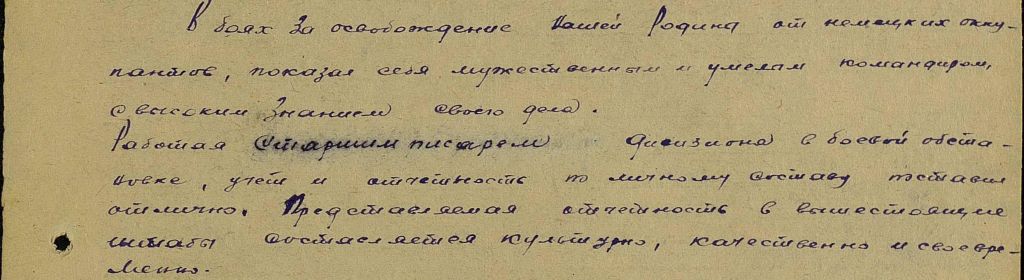 В боях за освобождение нашей Родины от немецких окку-
пантов, показал себя мужественным и умелым командиром,
с высоким знанием своего дела.
Работая старшим писарем дивизиона в боевой обста-
новке, учет и отчетность по личному составу поставил
отлично. Представляемая отчетность в вышестоящие
штабы составляется культурно, качественно и своевре-
менно.